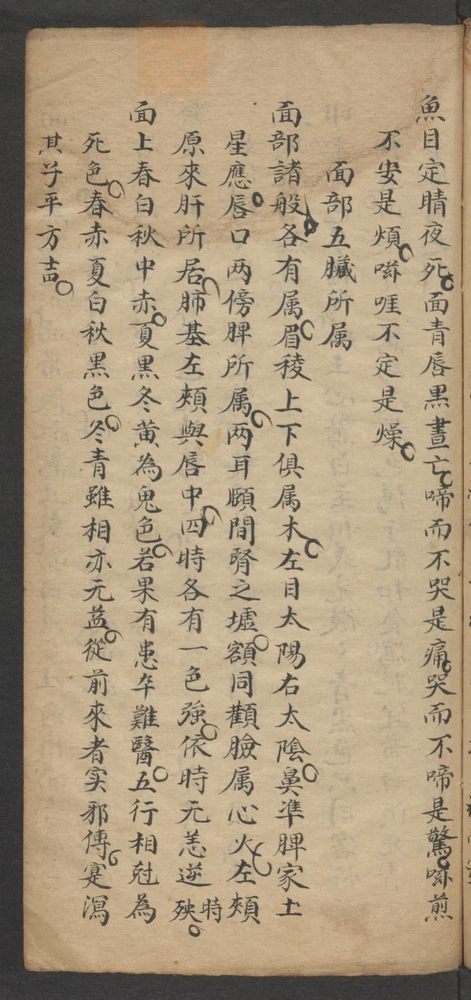 魚目定睛夜死面青唇黒晝亡啼而不哭是痛哭而不啼是驚㗭煎
不安是煩㗭哇不定是燥
面部五臟所属
面部諸般各有属眉稜上下俱属木左目太陽右太陰鼻準脾家土
星應唇口两傍脾所属两耳頥間腎之墟額同顴臉属心火左頰
原來肝所居肺基左頰與唇中四時各有一色強依時无恙逆時殃
面上春白秋中赤夏黒冬黄為鬼色若果有患卒難醫五行相尅為
死色春赤夏白秋黒色冬青雖相亦元益從前來者实邪傳寔瀉
其子平方吉